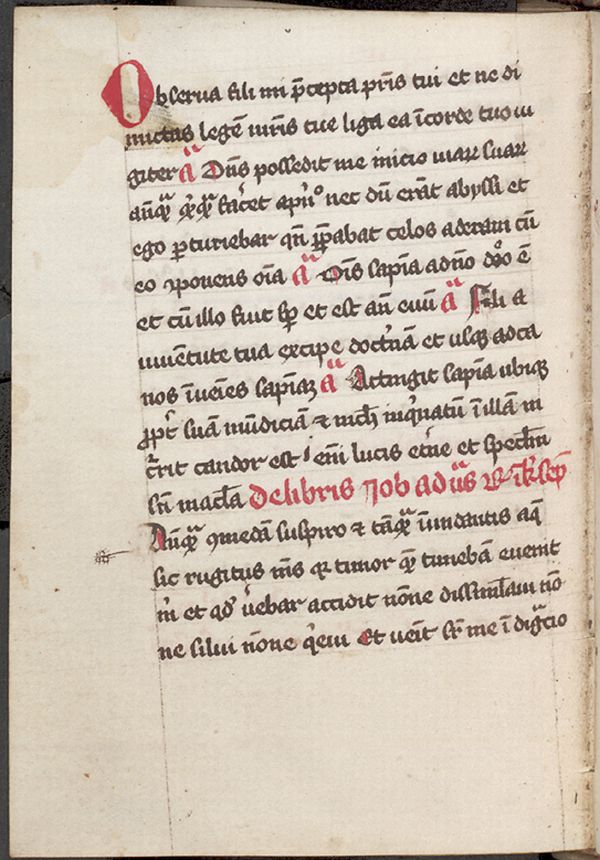 Obserua fili mi p̄cepta pr̄is tui et ne di
mictas legē mr̄is tue liga ea ī corde tuo iu
giter a Dn̄s possedit me inicio uiaꝝ suaꝝ
an̄qᷓ qͥcqᷓ fac̄et apn̄ᵒ nec dū erāt abyssi et
ego ꝑturiebar qn̄ p̄ꝑabat celos aderam cū
eo ꝯponens oīa a Oīs sapīa a dn̄o dō ē
et cū illo fuit sp̄ et est an̄ euū a Fili a
iuuentute tua excipe doctⁱnā et usqꝫ ad ca
nos īuēies sapīaꝫ a Attingit sapīa ubiqꝫ
ꝓpt̄ suā mūdiciā ⁊ nich̄ inqⁱnatū ī illam in
cr̄rit candor est ī enī lucis et̄ne et specl̄m
sn̄ macl̄a De libris Job ad us
An̄qᷓ ꝯmedā suspiro ⁊ tāqᷓ īundantis aq̄
sic rugitus m̄s qꝛ timor quē timebā euenit
m̄ et qd̄ u̓ebar accidit nōne dissiml̄aui nō
ne silui nōne qⁱeui Et uēit sr̄ me īdigᷓcio